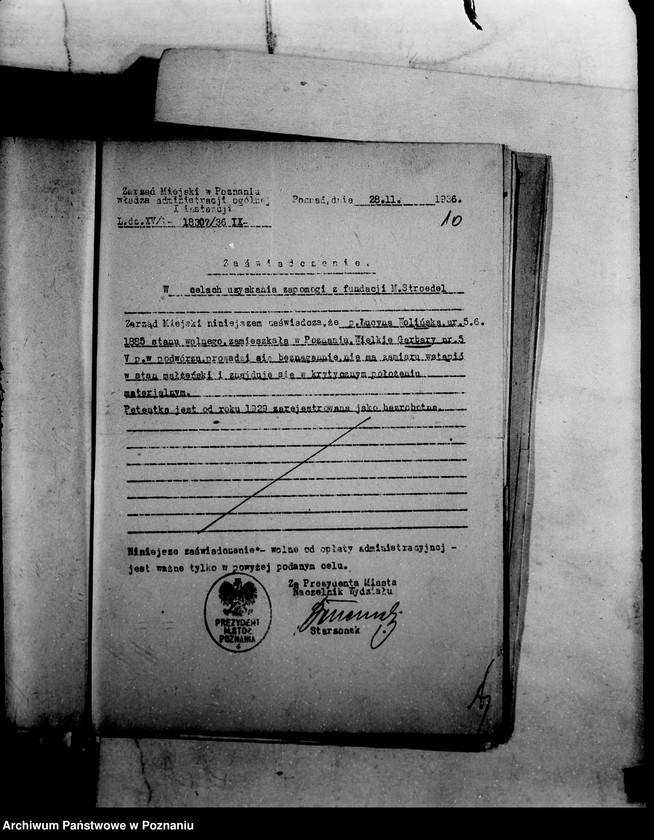 Zarząd Miejski w Poznaniu
władza administracji ogólnej
I instancji
L.dz.XV/1- 18307/36 IX-
Poznań, dnia 28.11. 1936.
10
Zaświadczenie.
W celach uzyskania zapomogi z fundacji M.Stroedel
Zarząd Miejski niniejszem zaświadcza, że p.Łucyna Wolińska, ur.5.6.
1885 stanu wolnego, zamieszkała w Poznaniu, Wielkie Garbary nr.5
V p.w podwórzu, prowadzi się beznagannie, nie ma zamiaru wstąpić
w stan małżeński i znajduje się w krytycznym położeniu
materjalnym.
Petentka jest od roku 1929 zarejestrowana jako bezrobotna.
Niniejsze zaświadczenie - wolne od opłaty administracyjnej -
jest ważne tylko w powyżej podanym celu.
Za Prezydenta Miasta
Naczelnik Wydziału
Starzonek
PREZYDENT
M.STOŁ.
POZNANIA
6
Archiwum Państwowe w Poznaniu